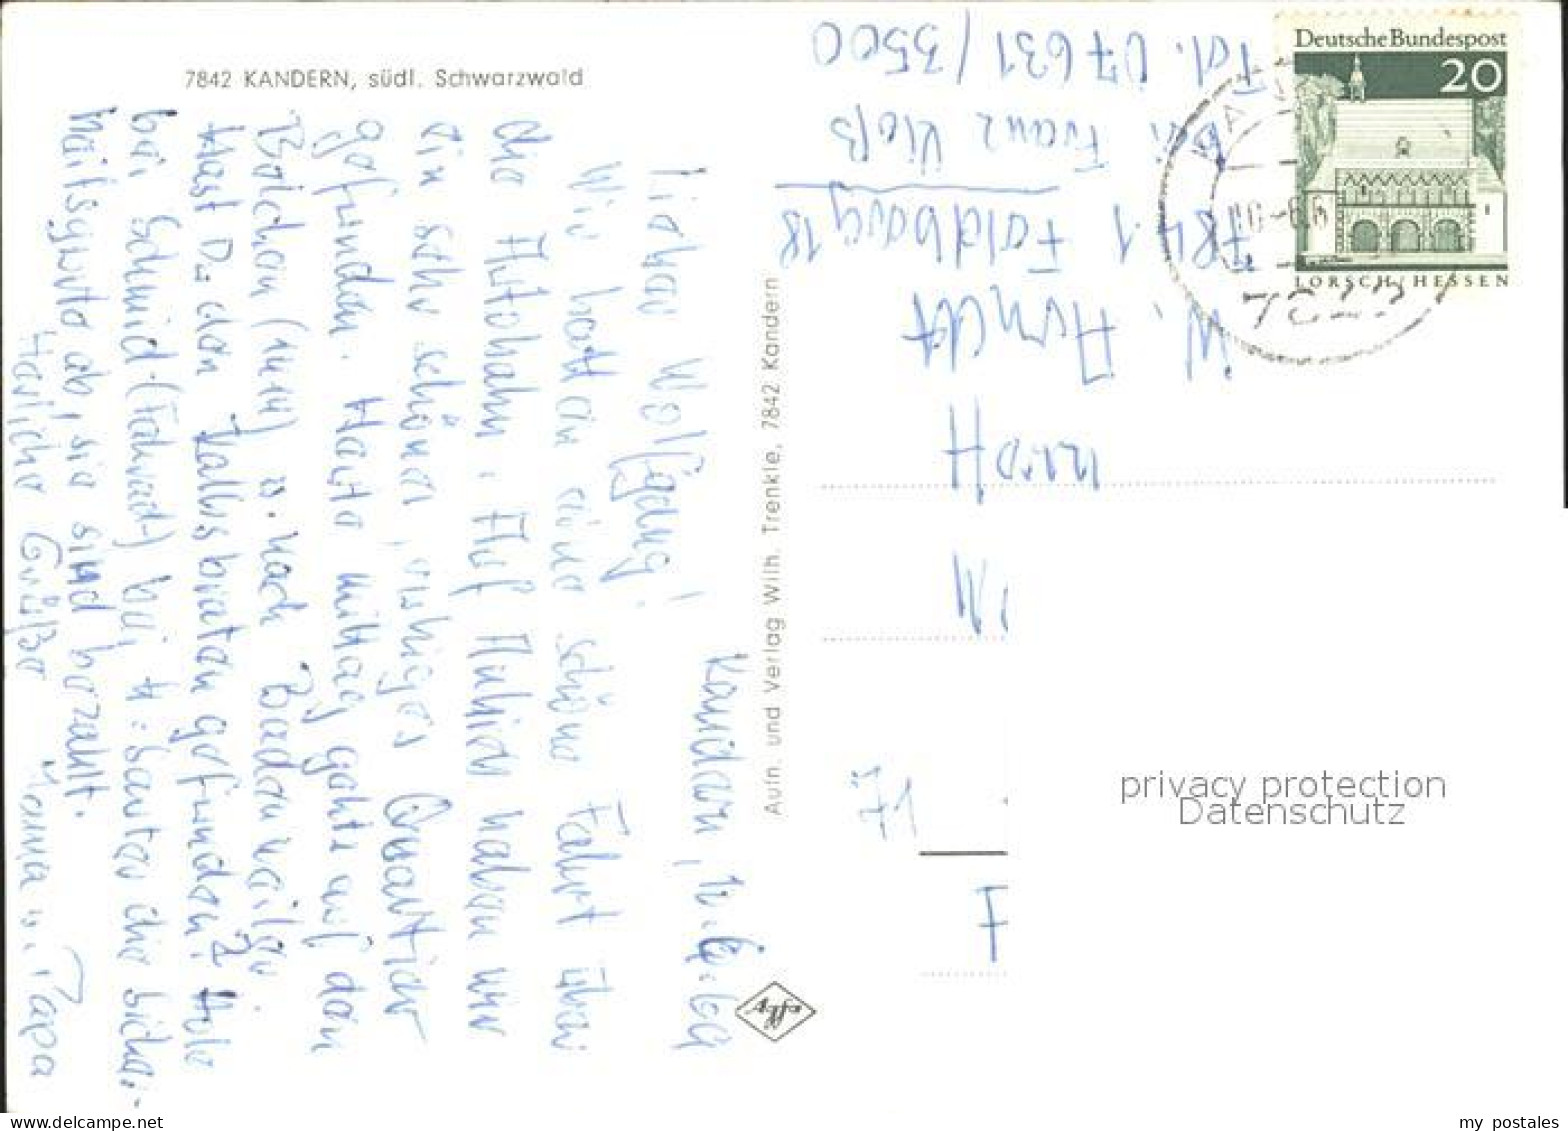 7842 KANDERN, südl. Schwarzwald
Kandern, 12.6.69
Lieber Wolfgang!
Wir hatten eine schöne Fahrt über
die Autobahn. Auf Anhieb haben wir
ein sehr schönes, ruhiges Quartier
gefunden. Heute mittag gehts auf den
Belchen (1414) u. nach Badenweiler.
Hast Du den Kalbsbraten gefunden? Hole
bei Schmid (Fahrrad-) bei
ab, sie sind bezahlt.
Herzliche Grüße Mama u. Papa
Aufn. und Verlag Wilh. Trenkle, 7842 Kandern
Agfa
W. Arndt
7841 Feldberg 18
bei Franz Kloß
Tel. 07631/3500
Deutsche Bundespost
20
LORSCH/HESSEN
privacy protection
Datenschutz
my postales